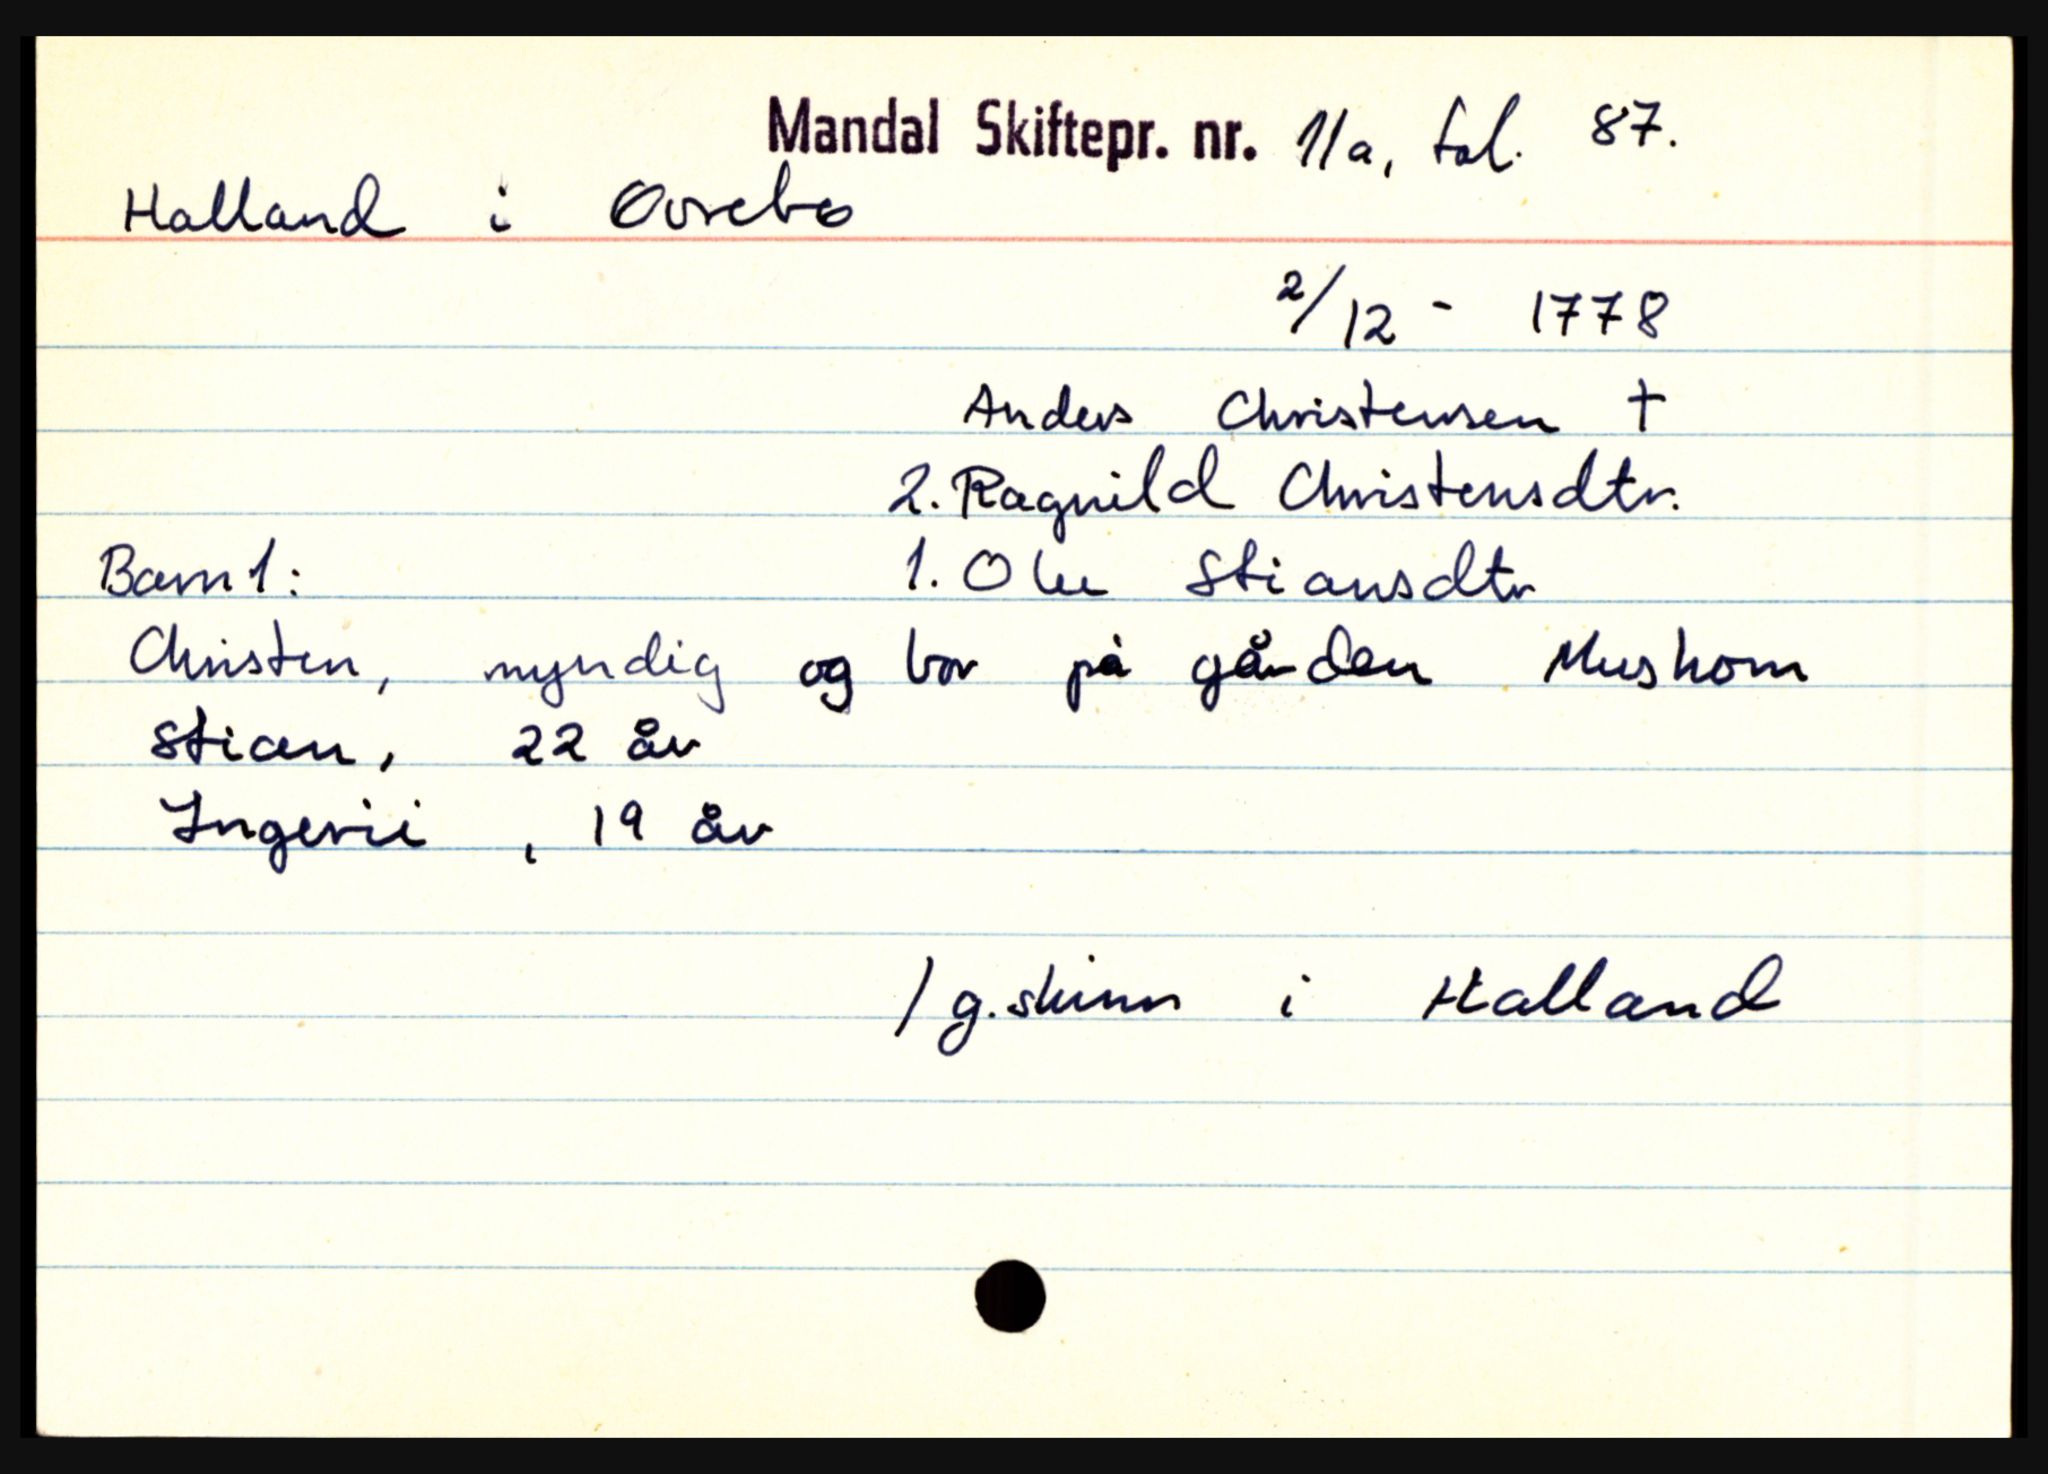 Mandal Skiftepr. nr. 11a, fol. 87.
Halland i Øvrebø
2/12 - 1778
Anders Christensen †
2. Ragnild Christensdtr.
Barn 1: 1. Ole Stiansdtr
Christen, myndig og bor på gården Mushom
Stian, 22 år
Ingerii, 19 år
/ g.skinn i Halland